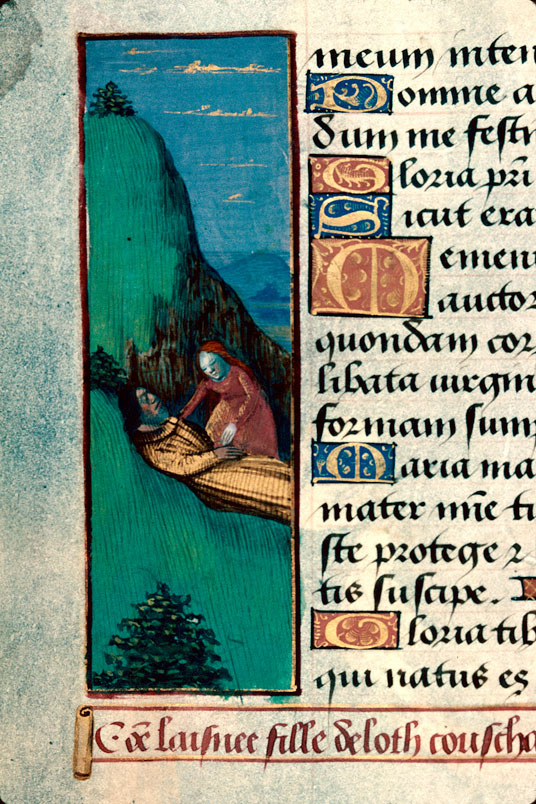 meum inten
Domine a
dum me festi
Gloria pri
Sicut era
Memen
auctor
quondam cor
libata virgin
formam sum
Maria ma
mater mie ti
ste protege 2
tis suscipe.
Gloria tib
qui natus es
laisnee fille deloth couscha